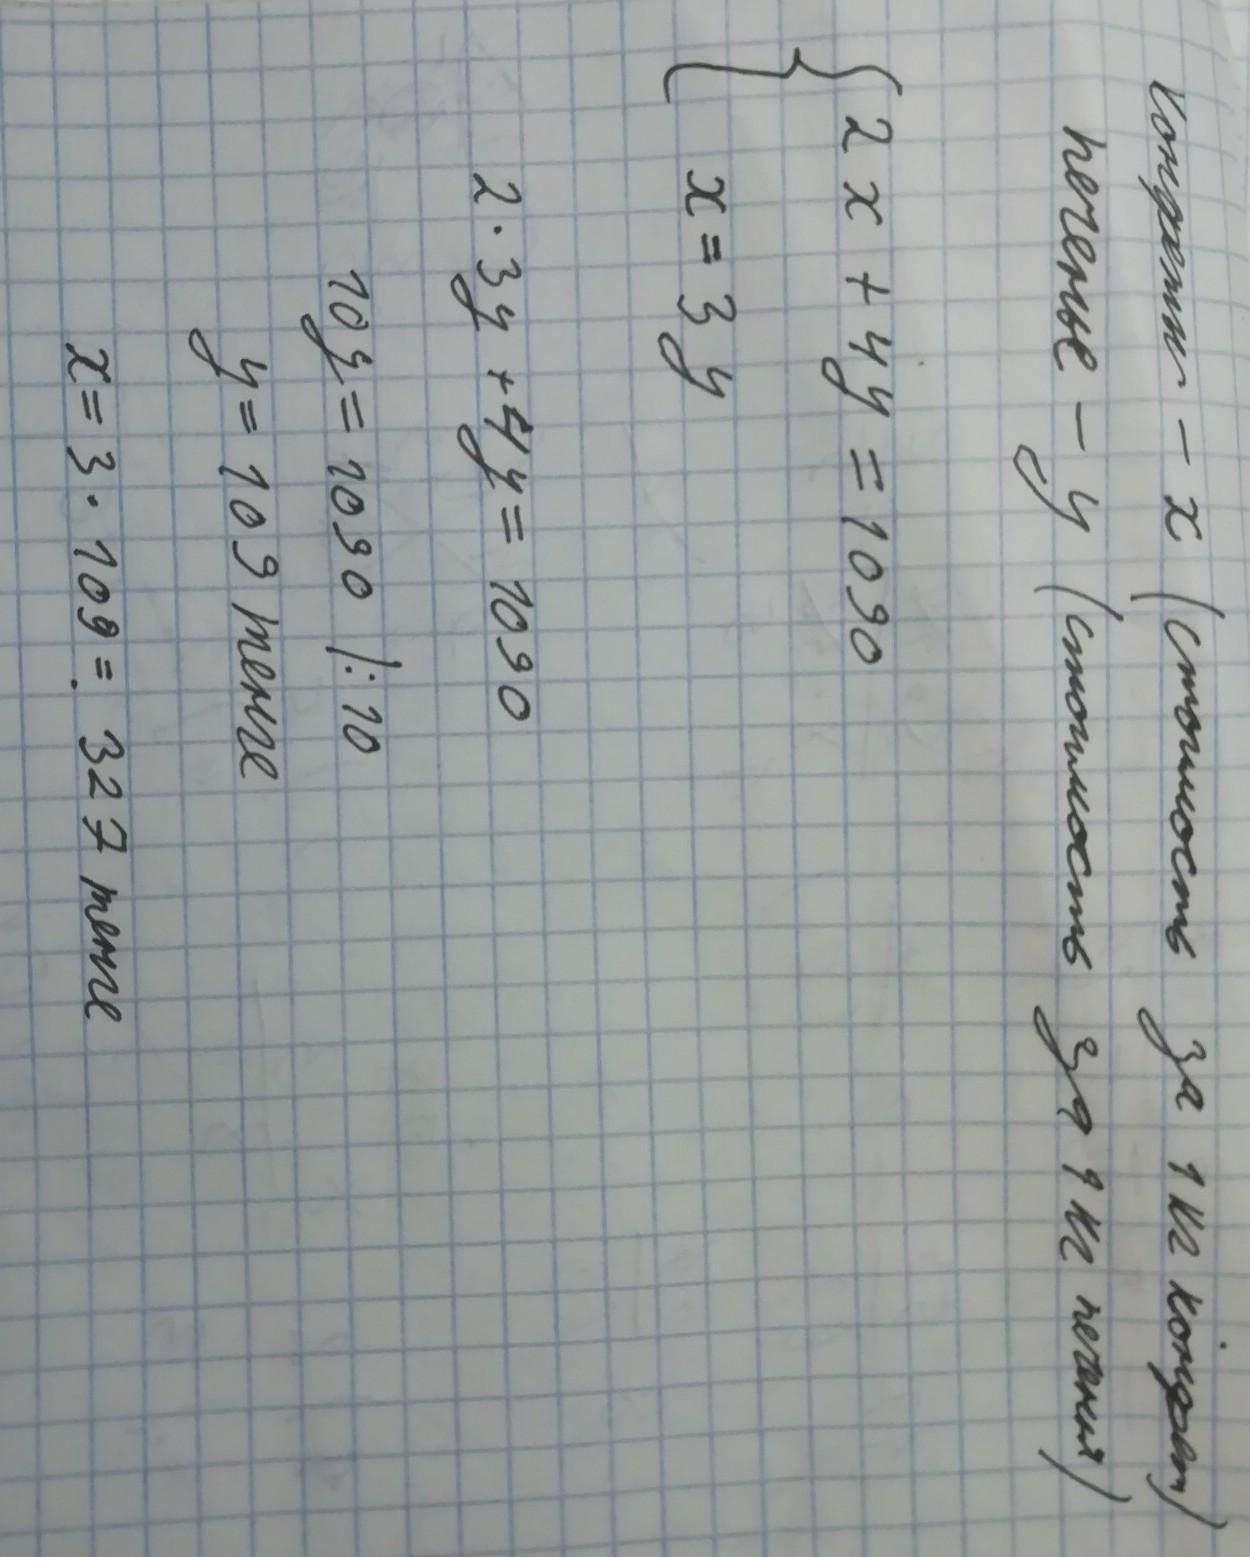 Конфеты - x (стоимость за 1 кг конфет)
печенье - y (стоимость за 1 кг печенья)
{ 2x + 4y = 1090
x = 3y
2·3y + 4y = 1090
10y = 1090 |:10
y = 109 тенге
x = 3·109 = 327 тенге